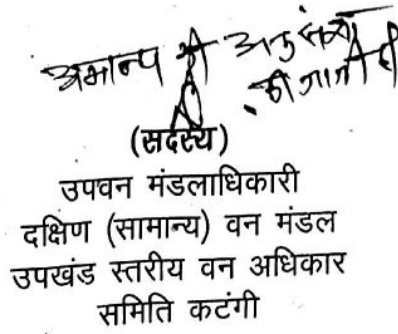 अमान्य की अनुशंसा
की जाती है
(सदस्य)
उपवन मंडलाधिकारी
दक्षिण (सामान्य) वन मंडल
उपखंड स्तरीय वन अधिकार
समिति कटंगी